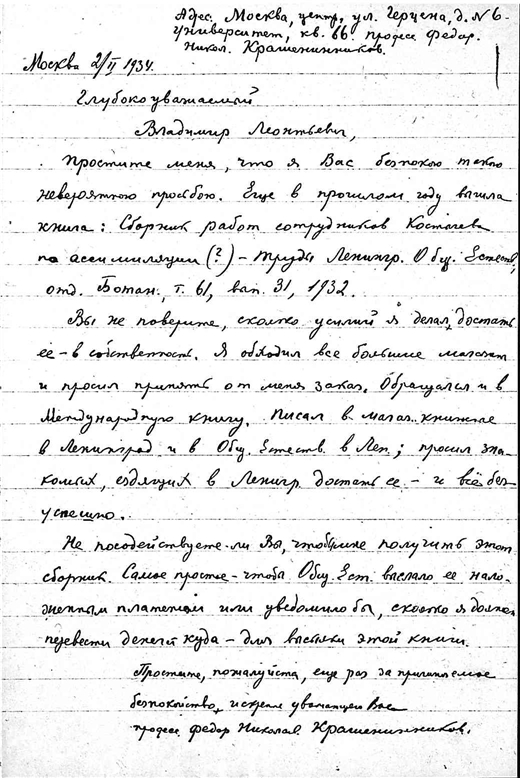 Адрес. Москва, центр, ул. Герцена, д. N 6.
Университет, кв. 66. професс Федор.
Никол. Крашенинников.
Москва 2/II 1934.
Глубокоуважаемый
Владимир Леонтьевич,
Простите меня, что я Вас безпокою такою
невероятною просьбою. Еще в прошлом году вышла
книга: Сборник работ сотрудников Костычева
по ассимиляции (?) – Труды Ленингр. Общ. Естеств,
отд. Ботан., т. 61, вып. 31, 1932.
Вы не поверите, сколько усилий я делал, достать
ее – в собственность. Я обходил все большие магазины
и просил принять от меня заказ. Обращался и в
Международную книгу. Писал в магаз. книжные
в Ленинград и в Общ. Естеств. в Лен; просил зна-
комых, ездящих в Ленингр. достать ее. – и всё без
успешно.
Не посодействуете-ли Вы, чтобы мне получить этот
сборник. Самое простое – чтобы Общ. Ест. выслало ее нало-
женным платежом или уведомило бы, сколько я должен
перевести денег и куда – для высылки этой книги.
Простите, пожалуйста, еще раз за причиняемое
безпокойство, искренно уважающий Вас
професс Федор Николаев. Крашенинников.